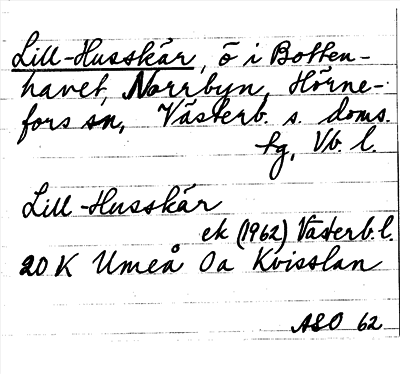 Lill-Husskär, ö i Botten-
havet, Norrbyn, Hörne-
fors sn, Västerb. s. doms.
tg, Vb. l.
Lill-Husskär
ek (1962) Västerb.l.
20 K Umeå Oa Kvisslan
ASO 62